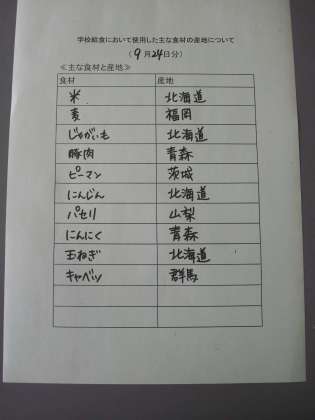 学校給食において使用した主な食材の産地について
(9月24日分)
≪主な食材と産地≫
食材 産地
米 北海道
麦 福岡
じゃがいも 北海道
豚肉 青森
ピーマン 茨城
にんじん 北海道
パセリ 山梨
にんにく 青森
玉ねぎ 北海道
キャベツ 群馬